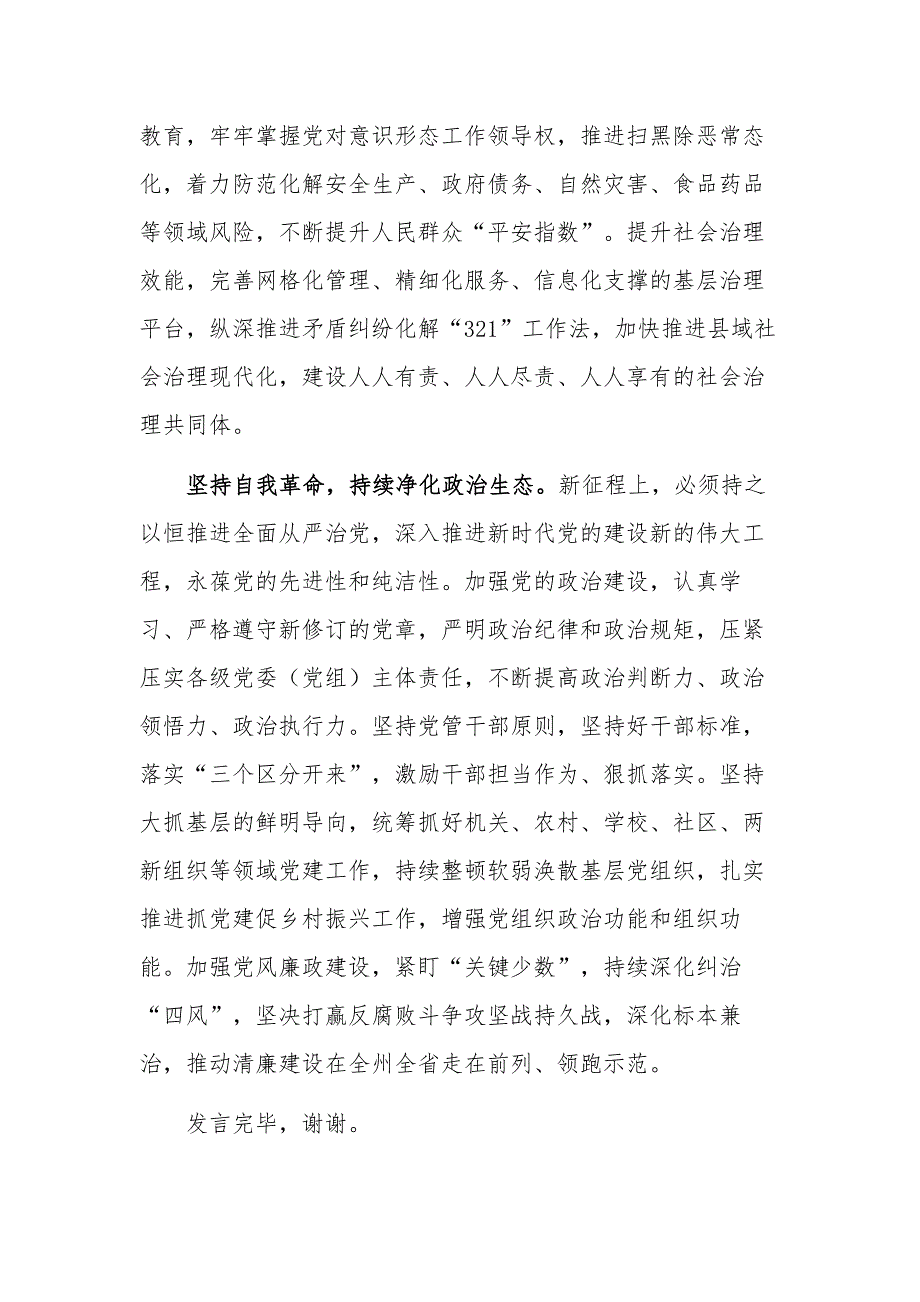 教育，牢牢掌握党对意识形态工作领导权，推进扫黑除恶常态
化，着力防范化解安全生产、政府债务、自然灾害、食品药品
等领域风险，不断提升人民群众“平安指数”。提升社会治理
效能，完善网格化管理、精细化服务、信息化支撑的基层治理
平台，纵深推进矛盾纠纷化解“321”工作法，加快推进县域社
会治理现代化，建设人人有责、人人尽责、人人享有的社会治
理共同体。
坚持自我革命，持续净化政治生态。新征程上，必须持之
以恒推进全面从严治党，深入推进新时代党的建设新的伟大工
程，永葆党的先进性和纯洁性。加强党的政治建设，认真学
习、严格遵守新修订的党章，严明政治纪律和政治规矩，压紧
压实各级党委（党组）主体责任，不断提高政治判断力、政治
领悟力、政治执行力。坚持党管干部原则，坚持好干部标准，
落实“三个区分开来”，激励干部担当作为、狠抓落实。坚持
大抓基层的鲜明导向，统筹抓好机关、农村、学校、社区、两
新组织等领域党建工作，持续整顿软弱涣散基层党组织，扎实
推进抓党建促乡村振兴工作，增强党组织政治功能和组织功
能。加强党风廉政建设，紧盯“关键少数”，持续深化纠治
“四风”，坚决打赢反腐败斗争攻坚战持久战，深化标本兼
治，推动清廉建设在全州全省走在前列、领跑示范。
发言完毕，谢谢。